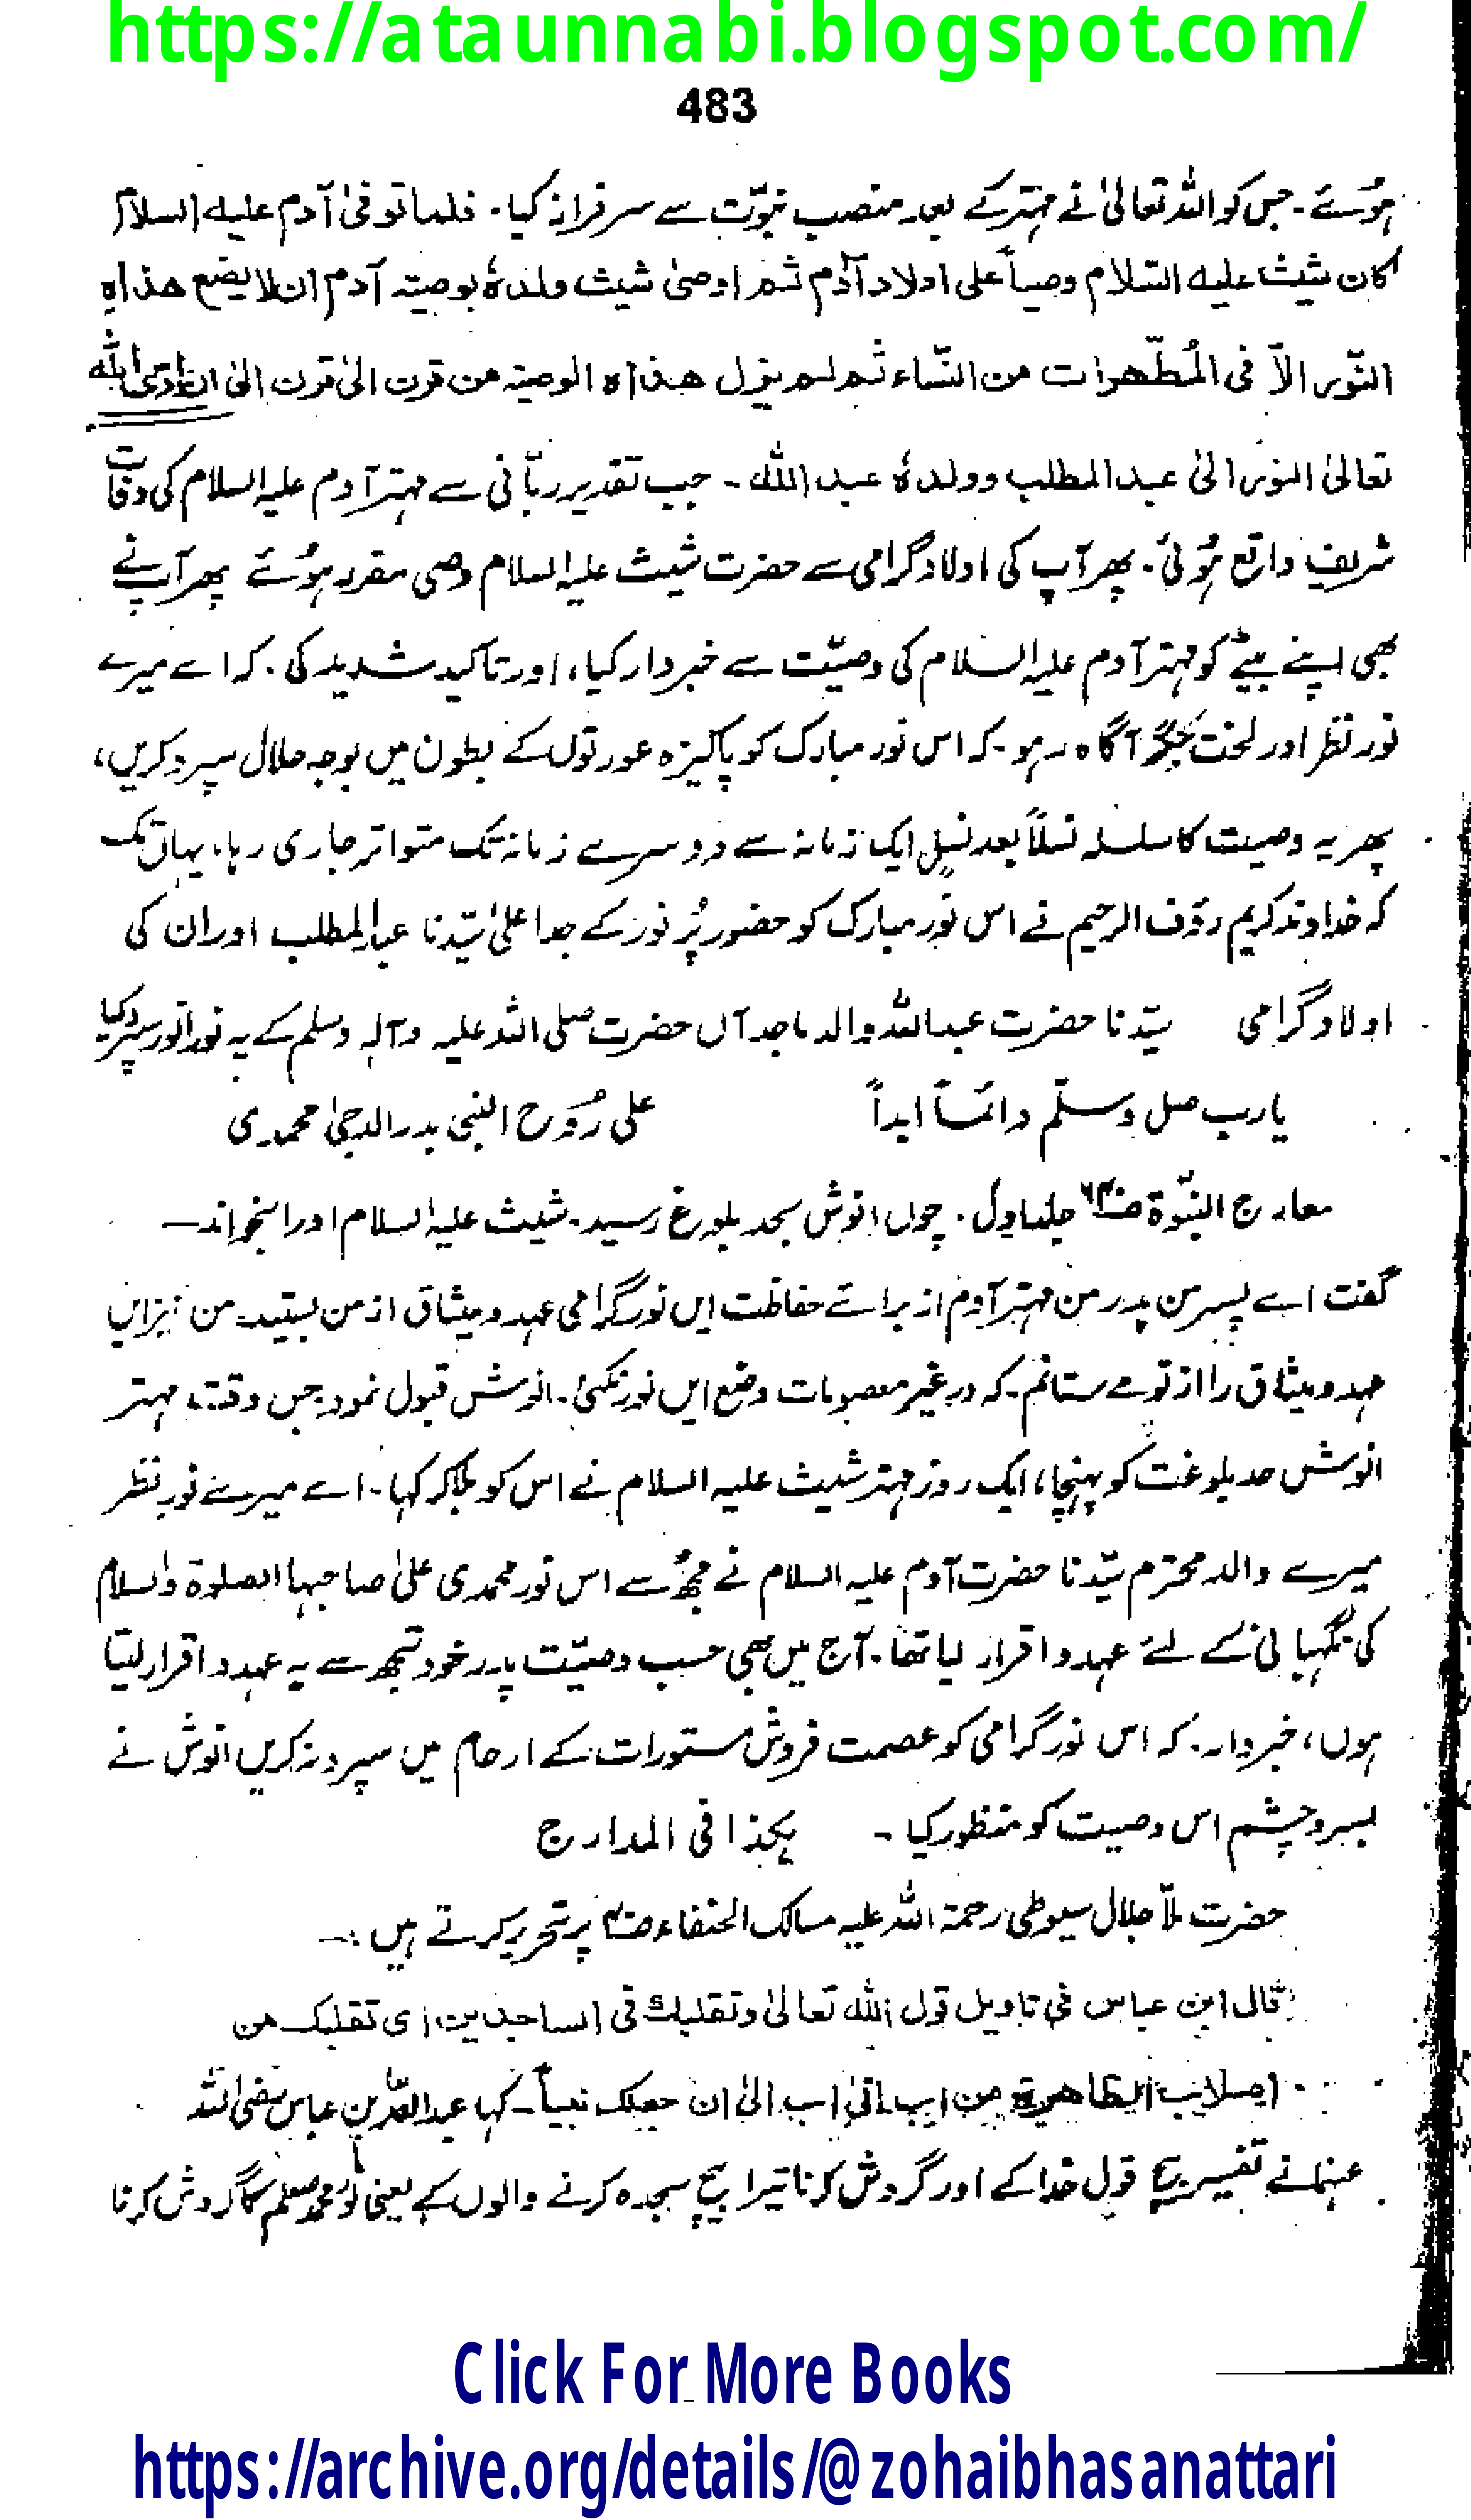 https://ataunnabi.blogspot.com/
483
ہوُئے۔ جس کو اللہ تعالیٰ نے مہتر کے بعد منصب نبوّت سے سرفراز کیا۔ فلما توفیٰ آدم علیہ السلام
کان شیث علیہ السّلام وصیاً علی اولاد آدم ثم اوصیٰ شیث ولدہٗ بوصیتہ آدم ان لا یضع ھذاہ
النّور الاّ فی المُطّھرات من النّساء ثم لم یزل ھذاہ الوصیتہ من قرن الیٰ قرن الیٰ ان ادی اللہ
تعالیٰ النور الیٰ عبد المطلب وولدہٗ عبد اللہ ۔ جب تقدیر ربّانی سے مہتر آدم علیہ السلام کی وفات
شریف واقع ہوُئی۔ پھر آپ کی اولاد گرامی سے حضرت شیث علیہ السلام وصی مقرر ہوُئے پھر آپ نے
بھی اپنے بیٹے کو مہتر آدم علیہ السلام کی وصیّت سے خبردار کیا، اور تاکید شدید کی۔ کہ اے میرے
نور نظر اور لخت جگر آگاہ رہو۔ کہ اس نور مبارک کو پاکیزہ عورتوں کے بطون میں بوجہ حلال سپرد کریں،
پھر یہ وصیت کا سلسلہ نسلاً بعد نسلٍ ایک زمانہ سے دوسرے زمانہ تک متواتر جاری رہا، یہاں تک
کہ خداوند کریم رؤف الرحیم نے اس نور مبارک کو حضور پُر نور کے جد اعلیٰ سیّدنا عبدالمطلب اور ان کی
اولاد گرامی سیّدنا حضرت عبداللہ والد ماجد آں حضرت صلی اللہ علیہ وآلہ وسلم کے یہ نور انور سپرد کیا
یارب صل وسلّم دائماً ابداً علی رُوح النبی بدر الدجیٰ محمدی
معارج النبّوۃ جلد اول۔ چوں انوش بحد بلورغ رسید۔ شیث علیہ السلام اورا بخواند—
گفت اے پسر من پدر من مہتر آدم از برائے حفاظت ایں نور گرامی عہد و میثاق از من بستید۔ من نیز ایں
عہد و میثاق را از تو مے ستانم۔ کہ در غیر معصومات وضع ایں نور نکنی۔ انوش قبول نمود۔ جس وقت مہتر
انوش حد بلوغت کو پہنچا، ایک روز مہتر شیث علیہ السلام نے اس کو بُلا کر کہا۔ اے میرے نور نظر
میرے والد محترم سیّدنا حضرت آدم علیہ السلام نے مجھُ سے اس نور محمدی علیٰ صاحبہا الصلوۃ والسلام
کی نگہبانی کے لئے عہد و اقرار لیا تھا۔ آج میں بھی حسب وصیّت پدر خود تجھ سے یہ عہد و اقرار لیتا
ہوں، خبردار۔ کہ اس نور گرامی کو عصمت فروش مستورات کے ارحام میں سپرد نہ کریں انوش نے
بسر و چشم اس وصیت کو منظور کیا ۔ ہکذا فی المدارج
حضرت ملاّ جلال سیوطی رحمۃ اللہ علیہ مسالک الحنفاء پر تحریر کرتے ہیں :—
قال ابن عباس فی تاویل قول اللہ تعالیٰ وتقلبك فی الساجدین ای تقلبک من
اصلاب الطاھرۃ من اب الیٰ اب الیٰ ان جعلک نبیاً۔ کہا عبداللہ بن عباس رضی اللہ
عنہما نے تفسیر بیچ قول خدا کے اور گردش کرنا تیرا بیچ سجدہ کرنے والوں کے یعنی نور محمد صلعم کا گردش کرنا
Click For More Books
https://archive.org/details/@zohaibhasanattari